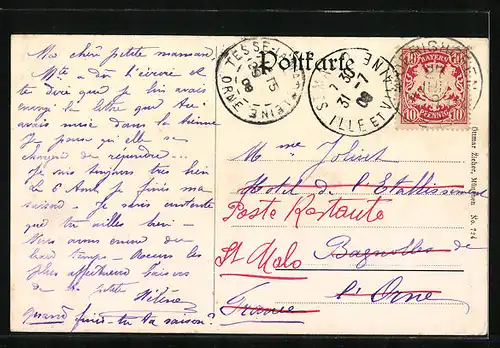 Ma chère petite maman
Mte a dû t'écrire et
te dire que je lui avais
envoyé la lettre que tu
avais mise dans la tienne
Je pense qu'elle se
chargera de répondre...
Je suis toujours très bien
Le 6 Août je finis ma
saison - Je serai contente
que tu
Nous avons encore du
beau temps - Reçois les
plus affectueux baisers
de ta petite
Hélène
Quand finis-tu ta saison?
Postkarte
TESSE-LA-MADELEINE
ORNE
08
ILLE ET VILAINE
31 -7
08
BAYERN
10 PFENNIG 10
Mme Joliet
Hotel de l'Etablissement
Poste Restante
St Malo
Bagnolles de
l'Orne
France
Ottmar Zieher, München No. 724